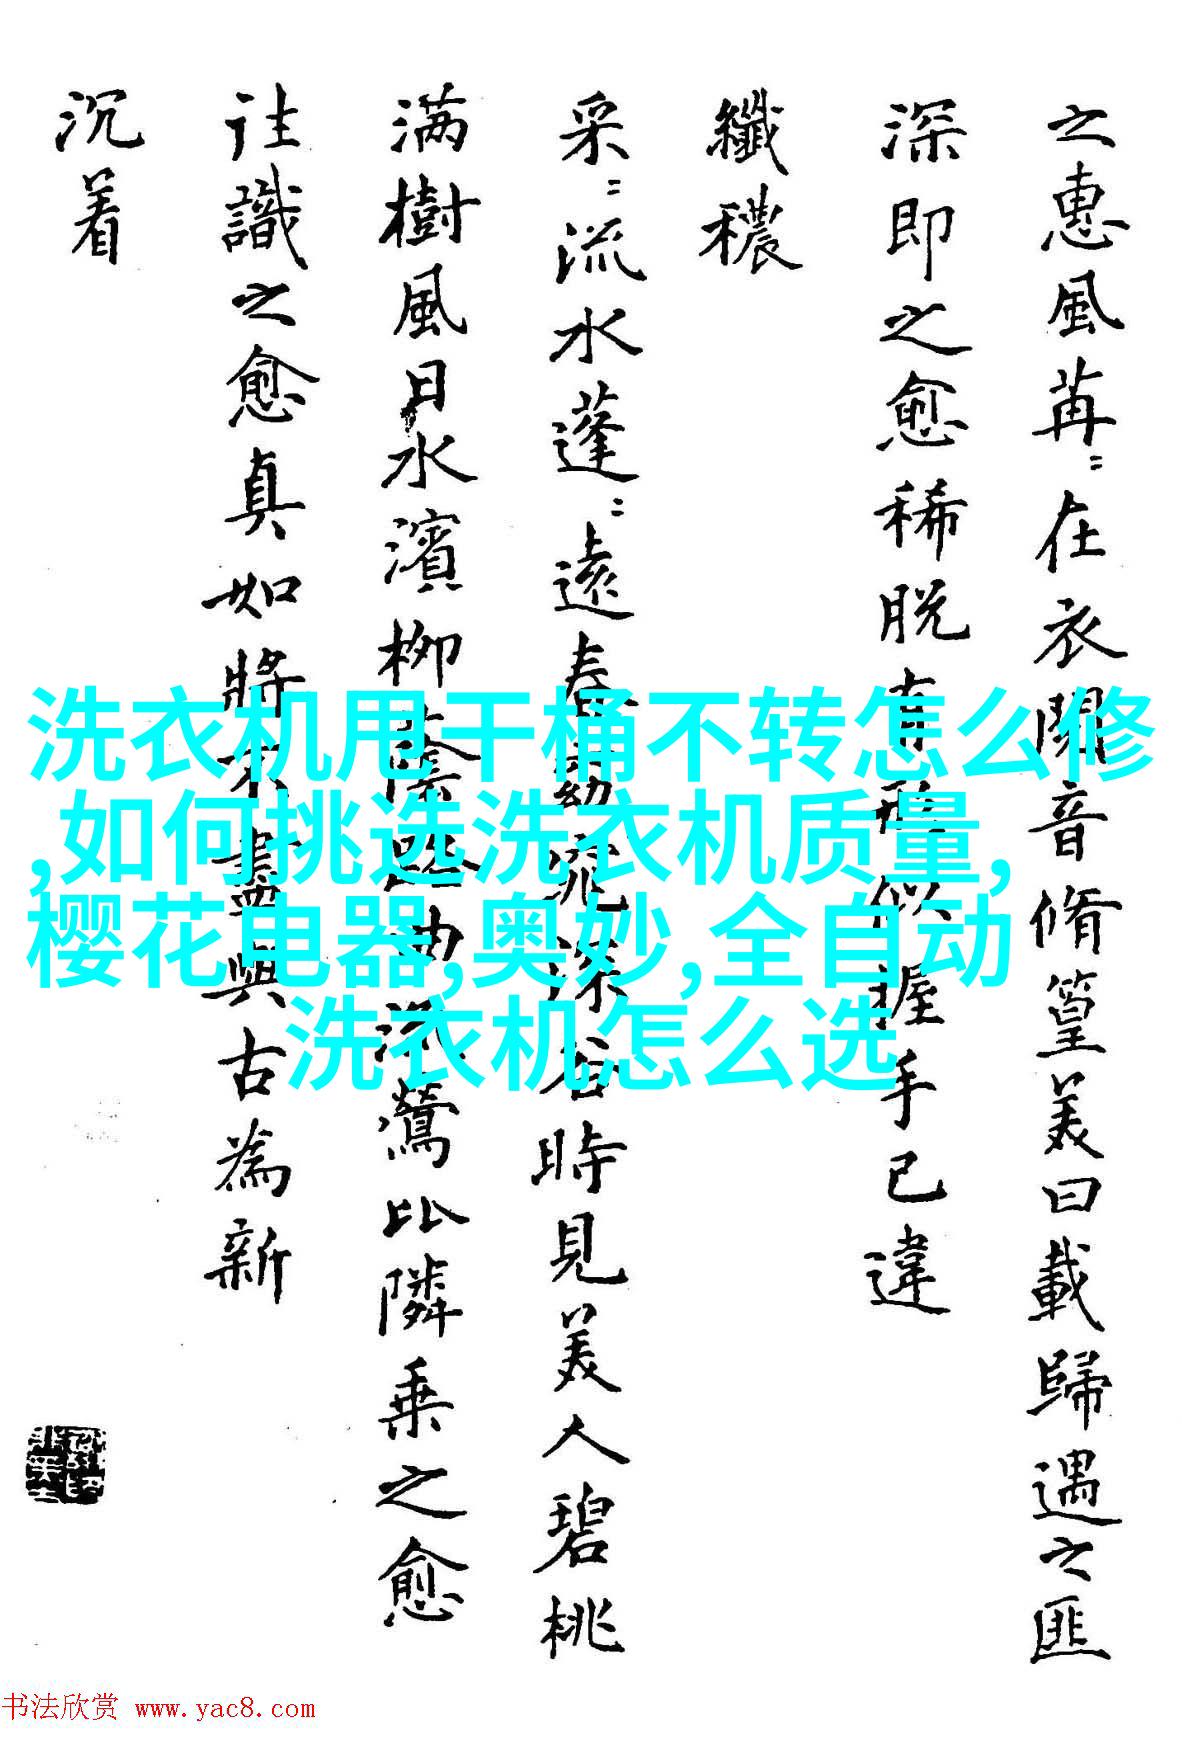 之惠風苒〻在衣閱音脩篁美曰載歸遇之匪
深即之愈稀脱有形似握手已違
纖穠
采〻流水蓬〻遠春窈窕深谷時見美人碧桃
满樹風日水濱柳陰路曲流鶯比隣乗之愈
往識之愈真如將不盡與古為新
沉着
洗衣机甩干桶不转怎么修
,如何挑选洗衣机质量,
樱花电器,奥妙,全自动
洗衣机怎么选
书法欣赏 www.yac8.com